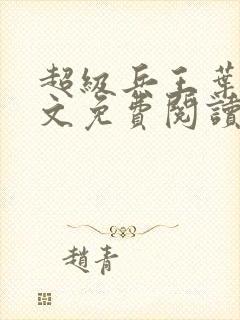 超級兵王葉
文免費閱讀
趙青